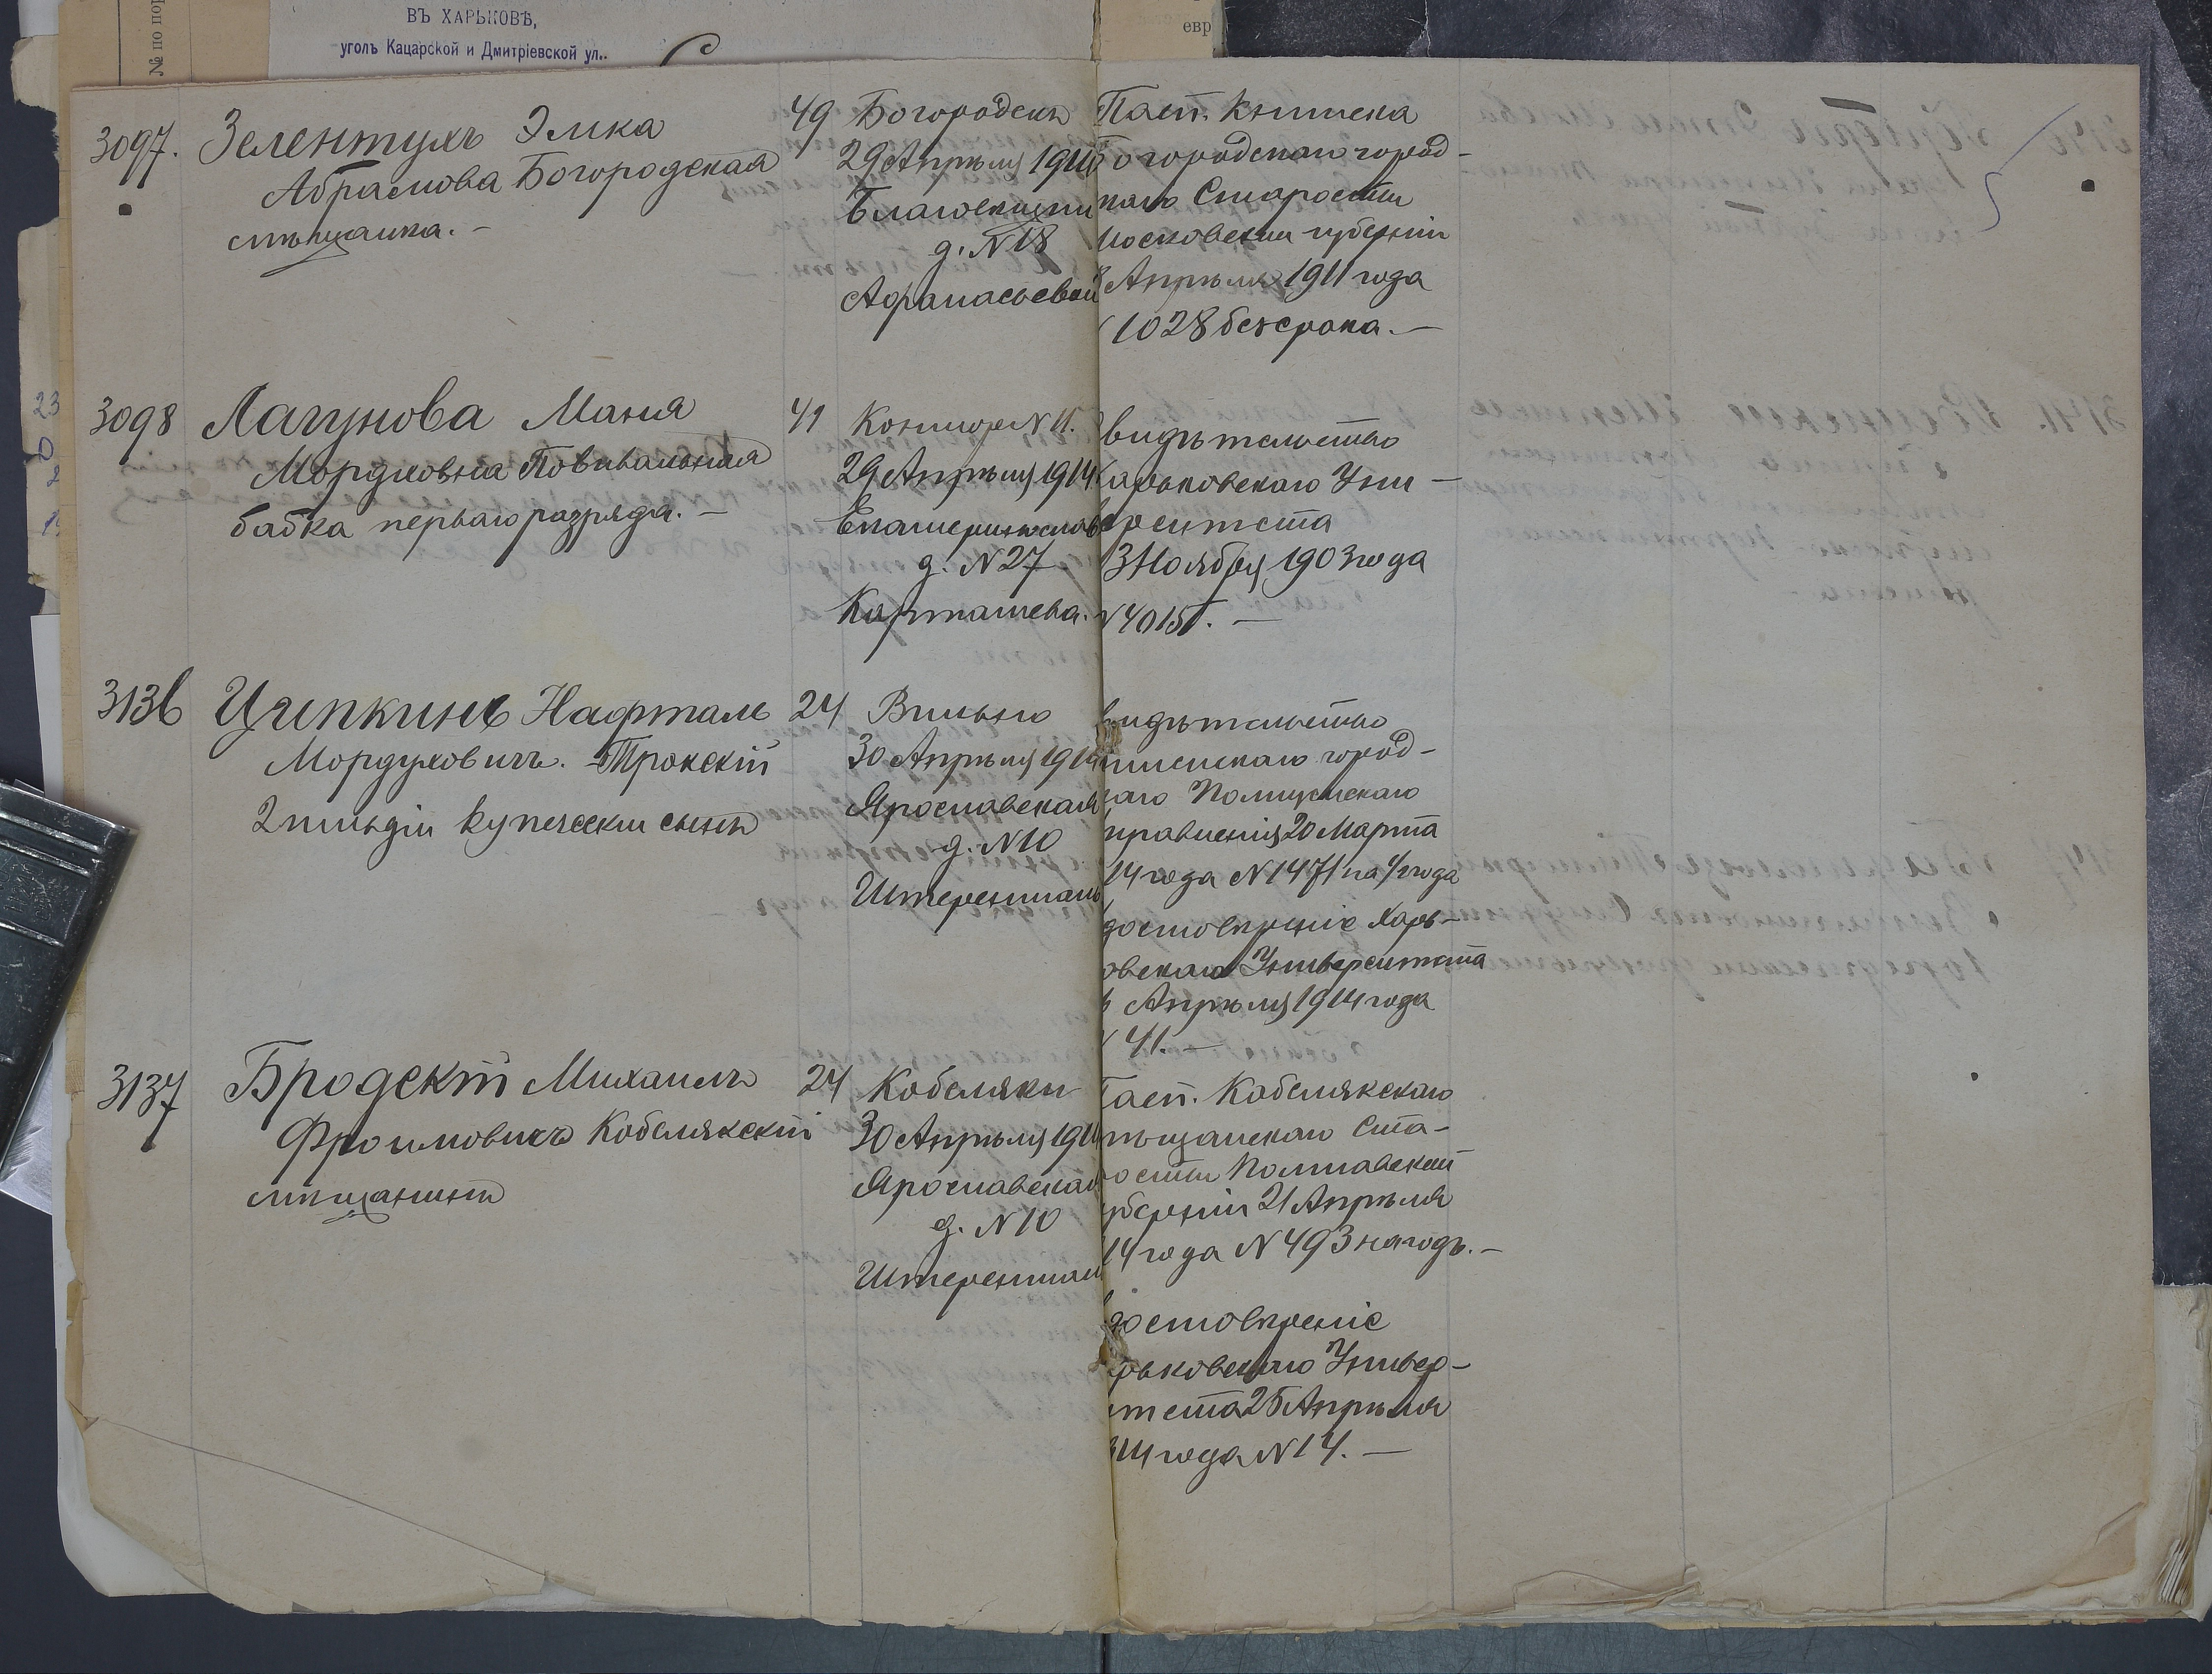 № по пор
ВЪ ХАРЬКОВѢ,
уголъ Кацарской и Дмитріевской ул..
евр
3097. Зелентухъ Элка
Абрамова Богородская
мѣщанка. –
49
Богородскъ
29 Апрѣля 1914
Благовѣщен
д. № 18
Афанасьевой
Пасп. книжка
Богородскаго город-
скаго Старосты
Московской губерніи
Апрѣля 1911 года
1028 безсрока. –
3098 Лагунова Маня
Мордуховна Повивальная
бабка перваго разряда. –
41
Конотопъ
29 Апрѣля 1914
Екатеринослав
д. № 27
Карташева.
видѣтельство
Харьковскаго Уни-
верситета
3 Ноября 1903 года
№ 4015. –
3136 Цыпкинъ Нафталь
Мордуховичъ. Трокскій
2 гильдіи купеческій сынъ
24
Вильно
30 Апрѣля 1914
Ярославская
д. № 10
Штеренталь
видѣтельство
город-
аго Полицейскаго
правленія 20 Марта
14 года № 1471 на 1/2 года
достовѣреніе Харь-
овскаго Университета
Апрѣля 1914 года
41. –
3137 Бродскій Михаилъ
Фроимовичъ Кобелякскій
мѣщанинъ
24
Кобеляки
30 Апрѣля 191
Ярославская
д. № 10
Штеренталь
Пасп. Кобелякскаго
мѣщанскаго Ста-
росты Полтавской
уберніи 21 Апрѣля
14 года № 493 на годъ. –
достовѣреніе
рьковскаго Универ-
итета 25 Апрѣля
914 года № 14. –